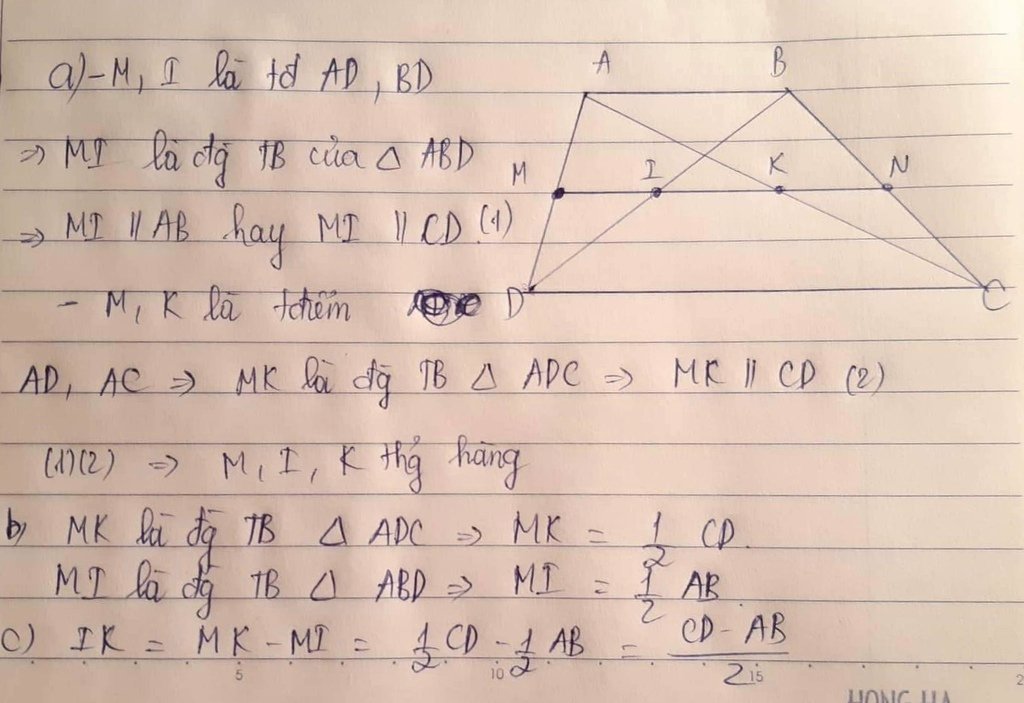 A B
a) - M, I là tđ AD, BD
=> MI là đg TB của Δ ABD
M I K N
=> MI // AB hay MI // CD (1)
- M, K là tđiểm
D C
AD, AC => MK là đg TB Δ ADC => MK // CD (2)
(1)(2) => M, I, K thg hàng
b) MK là đg TB Δ ADC => MK = 1/2 CD.
MI là đg TB Δ ABD => MI = 1/2 AB.
c) IK = MK - MI = 1/2 CD - 1/2 AB = (CD - AB)/2
5 10 15 2
HONG HA